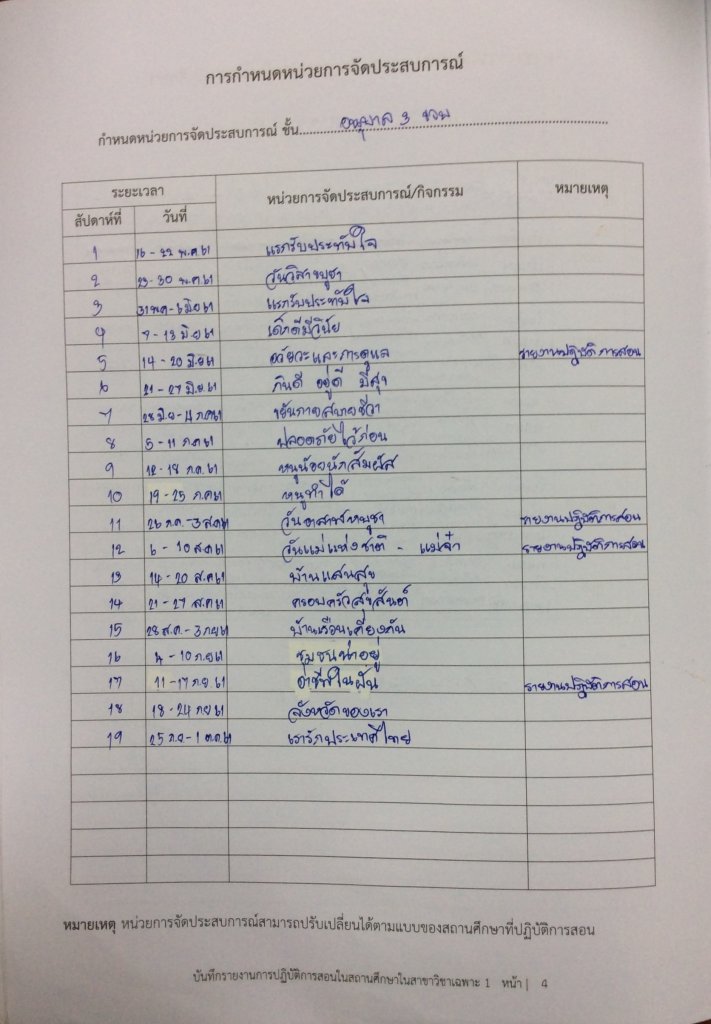 การกำหนดหน่วยการจัดประสบการณ์
กำหนดหน่วยการจัดประสบการณ์ ชั้น อนุบาล 3 ขวบ
ระยะเวลา หน่วยการจัดประสบการณ์/กิจกรรม หมายเหตุ
สัปดาห์ที่ วันที่
1 16 - 22 พ.ค 61 แรกรับประทับใจ
2 23 - 30 พ.ค 61 วันวิสาขบูชา
3 31 พ.ค - 6 มิย 61 แรกรับประทับใจ
4 7 - 13 มิย 61 เด็กดีมีวินัย
5 14 - 20 มิย 61 อวัยวะและการดูแล รายงานปฏิบัติการสอน
6 21 - 27 มิย 61 กินดี อยู่ดี มีสุข
7 28 มิย - 4 กค 61 ขยันกายสบายชีวา
8 5 - 11 กค 61 ปลอดภัยไว้ก่อน
9 12 - 18 ก.ค. 61 หนูน้อยนักสัมผัส
10 19 - 25 ก.ค 61 หนูทำได้
11 26 ก.ค. - 3 ส.ค 61 วันอาสาฬหบูชา รายงานปฏิบัติการสอน
12 6 - 10 ส.ค 61 วันแม่แห่งชาติ - แม่จ๋า รายงานปฏิบัติการสอน
13 14 - 20 ส.ค 61 บ้านแสนสุข
14 21 - 27 ส.ค 61 ครอบครัวสุขสันต์
15 28 ส.ค. - 3 กย 61 บ้านเรือนเคียงกัน
16 4 - 10 ก.ย 61 ชุมชนน่าอยู่
17 11 - 17 ก.ย. 61 อาชีพในฝัน รายงานปฏิบัติการสอน
18 18 - 24 กย 61 จังหวัดของเรา
19 25 ก.ย - 1 ต.ค. 61 เรารักประเทศไทย
หมายเหตุ หน่วยการจัดประสบการณ์สามารถปรับเปลี่ยนได้ตามแบบของสถานศึกษาที่ปฏิบัติการสอน
บันทึกรายงานการปฏิบัติการสอนในสถานศึกษาในสาขาวิชาเฉพาะ 1 หน้า | 4